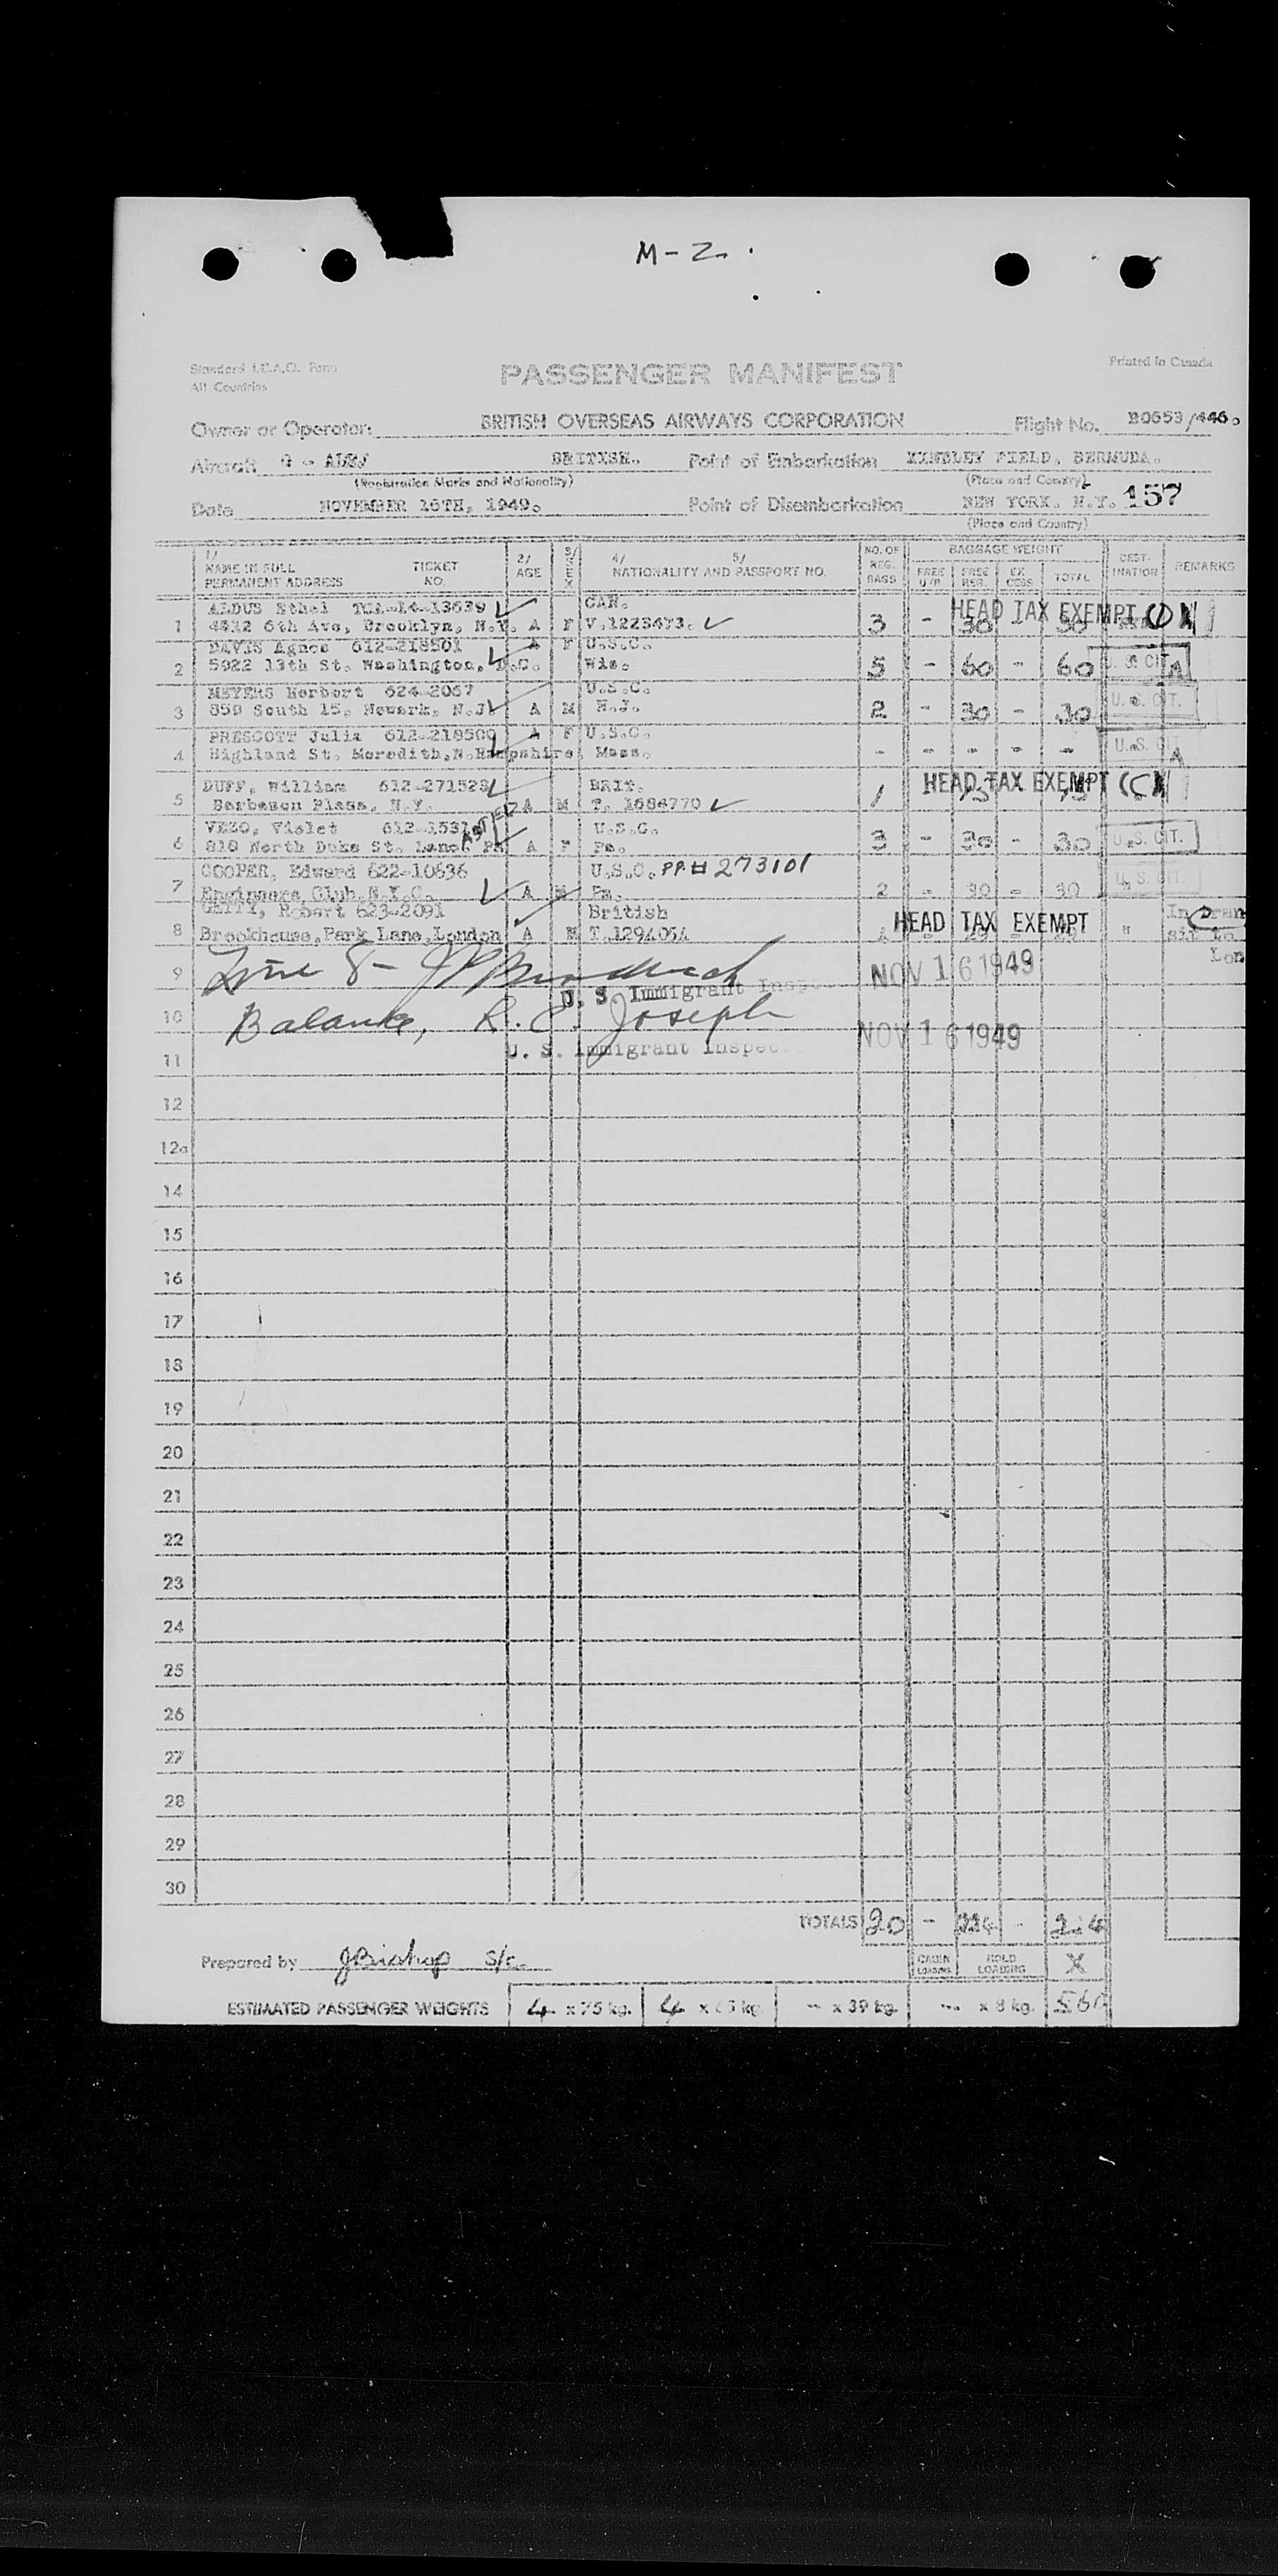 M-2.
Standard I.C.A.O. Form
All Countries
PASSENGER MANIFEST
Printed in Canada
Owner or Operator: BRITISH OVERSEAS AIRWAYS CORPORATION Flight No. B0653/446.
Aircraft BRITISH. Point of Embarkation KINDLEY FIELD, BERMUDA.
(Registration Marks and Nationality) (Place and Country)
Date NOVEMBER 16TH, 1949. Point of Disembarkation NEW YORK. N.Y. 157
(Place and Country)
1/ NAME IN FULL PERMANENT ADDRESS TICKET NO. 2/ AGE 3/ SEX 4/ 5/ NATIONALITY AND PASSPORT NO. NO. OF REG. BAGS BAGGAGE WEIGHT FREE REG. EX CESS TOTAL DEST- INATION REMARKS
ALDUS Ethel TCA-14-13639 CAN. HEAD TAX EXEMPT
1 4412 6th Ave, Brooklyn, N.Y. A F V.1223473. 3 - 30 30
DAVIS Agnes 612-218501 A F U.S.C.
2 5922 13th St. Washington, D.C. Wis. 5 - 60 - 60 U. S. CIT. A
MEYERS Herbert 624-2067 U.S.C.
3 859 South 15, Newark, N.J. A M N.J. 2 - 30 - 30 U. S. CIT.
PRESCOTT Julia 612-218500 A F U.S.C.
4 Highland St. Meredith, N.Hampshire. Mass. - - - - - U. S. CIT. A
DUFF, William 612-271528 BRIT. HEAD TAX EXEMPT (C)
5 Barbason Plaza, N.Y. A M T. 1684770 1 - 15
VEZO, Violet U.S.C.
6 818 North Duke St. Lanc. Pa A F Pa. 3 - 30 - 30 U. S. CIT.
COOPER, Edward 622-10636 U.S.C. PP.# 273101
7 Engineers Club, N.Y.C. A M Pa. 2 - 30 - 30 " U. S. CIT.
GETTY, Robert 623-2091 British HEAD TAX EXEMPT In Tran
8 Brookhouse, Park Lane, London A M T.1294054 " sit to
Lon
9 Line 8 - NOV 16 1949
U. S. Immigrant Inspe
10 Balance, R. C. Joseph
11 U. S. Immigrant Inspec NOV 16 1949
12
12a
14
15
16
17
18
19
20
21
22
23
24
25
26
27
28
29
30
TOTALS 20 - 224 - 224
Prepared by JBishop S/c. CABIN LOADING HOLD LOADING X
ESTIMATED PASSENGER WEIGHTS 4 x 75 kg. 4 x 65 kg. - x 39 kg. - x 8 kg. 560